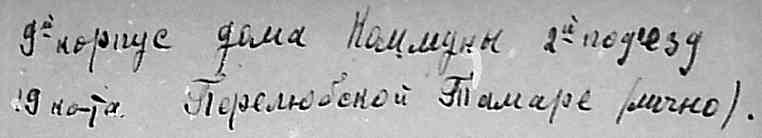 9й корпус дома Коммуны 2й подъезд
19 ко-та. Перелюбской Тамаре (лично).